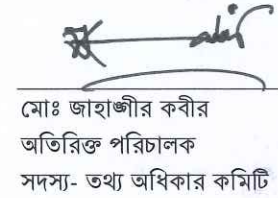 মোঃ জাহাঙ্গীর কবীর
অতিরিক্ত পরিচালক
সদস্য- তথ্য অধিকার কমিটি